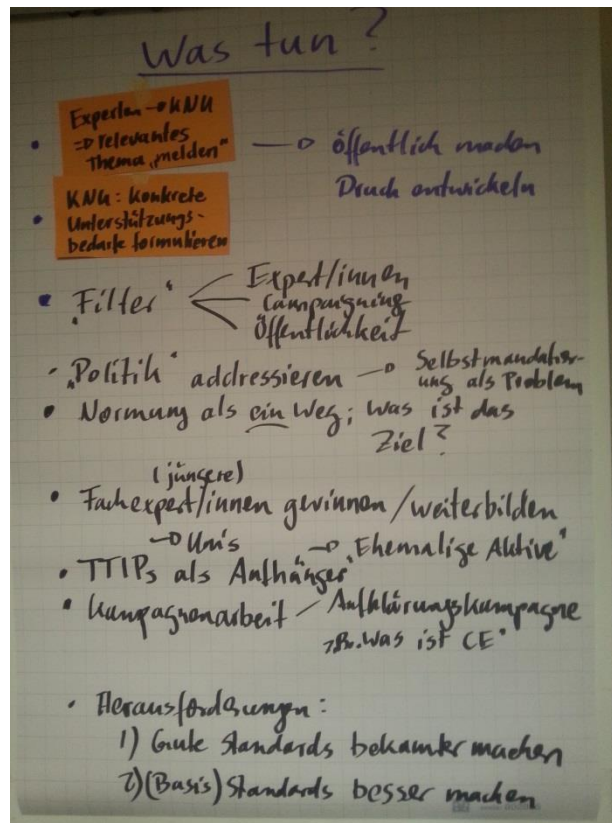 Was tun?
Experten → KNU
⇒ relevantes
Thema „melden"
→ öffentlich machen
Druck entwickeln
• KNU: Konkrete
Unterstützungs-
bedarfe formulieren
• „Filter"
Expert/innen
Campaigning
Öffentlichkeit
• „Politik" addressieren → Selbstmandatier-
ung als Problem
• Normung als ein Weg; Was ist das
Ziel?
(jüngere)
• Fachexpert/innen gewinnen/weiterbilden
→ Unis → „Ehemalige Aktive"
• TTIPs als Aufhänger
• Kampagnenarbeit / Aufklärungskampagne
z.B. „Was ist CE"
• Herausforderungen:
1) Gute Standards bekannter machen
2) (Basis) Standards besser machen